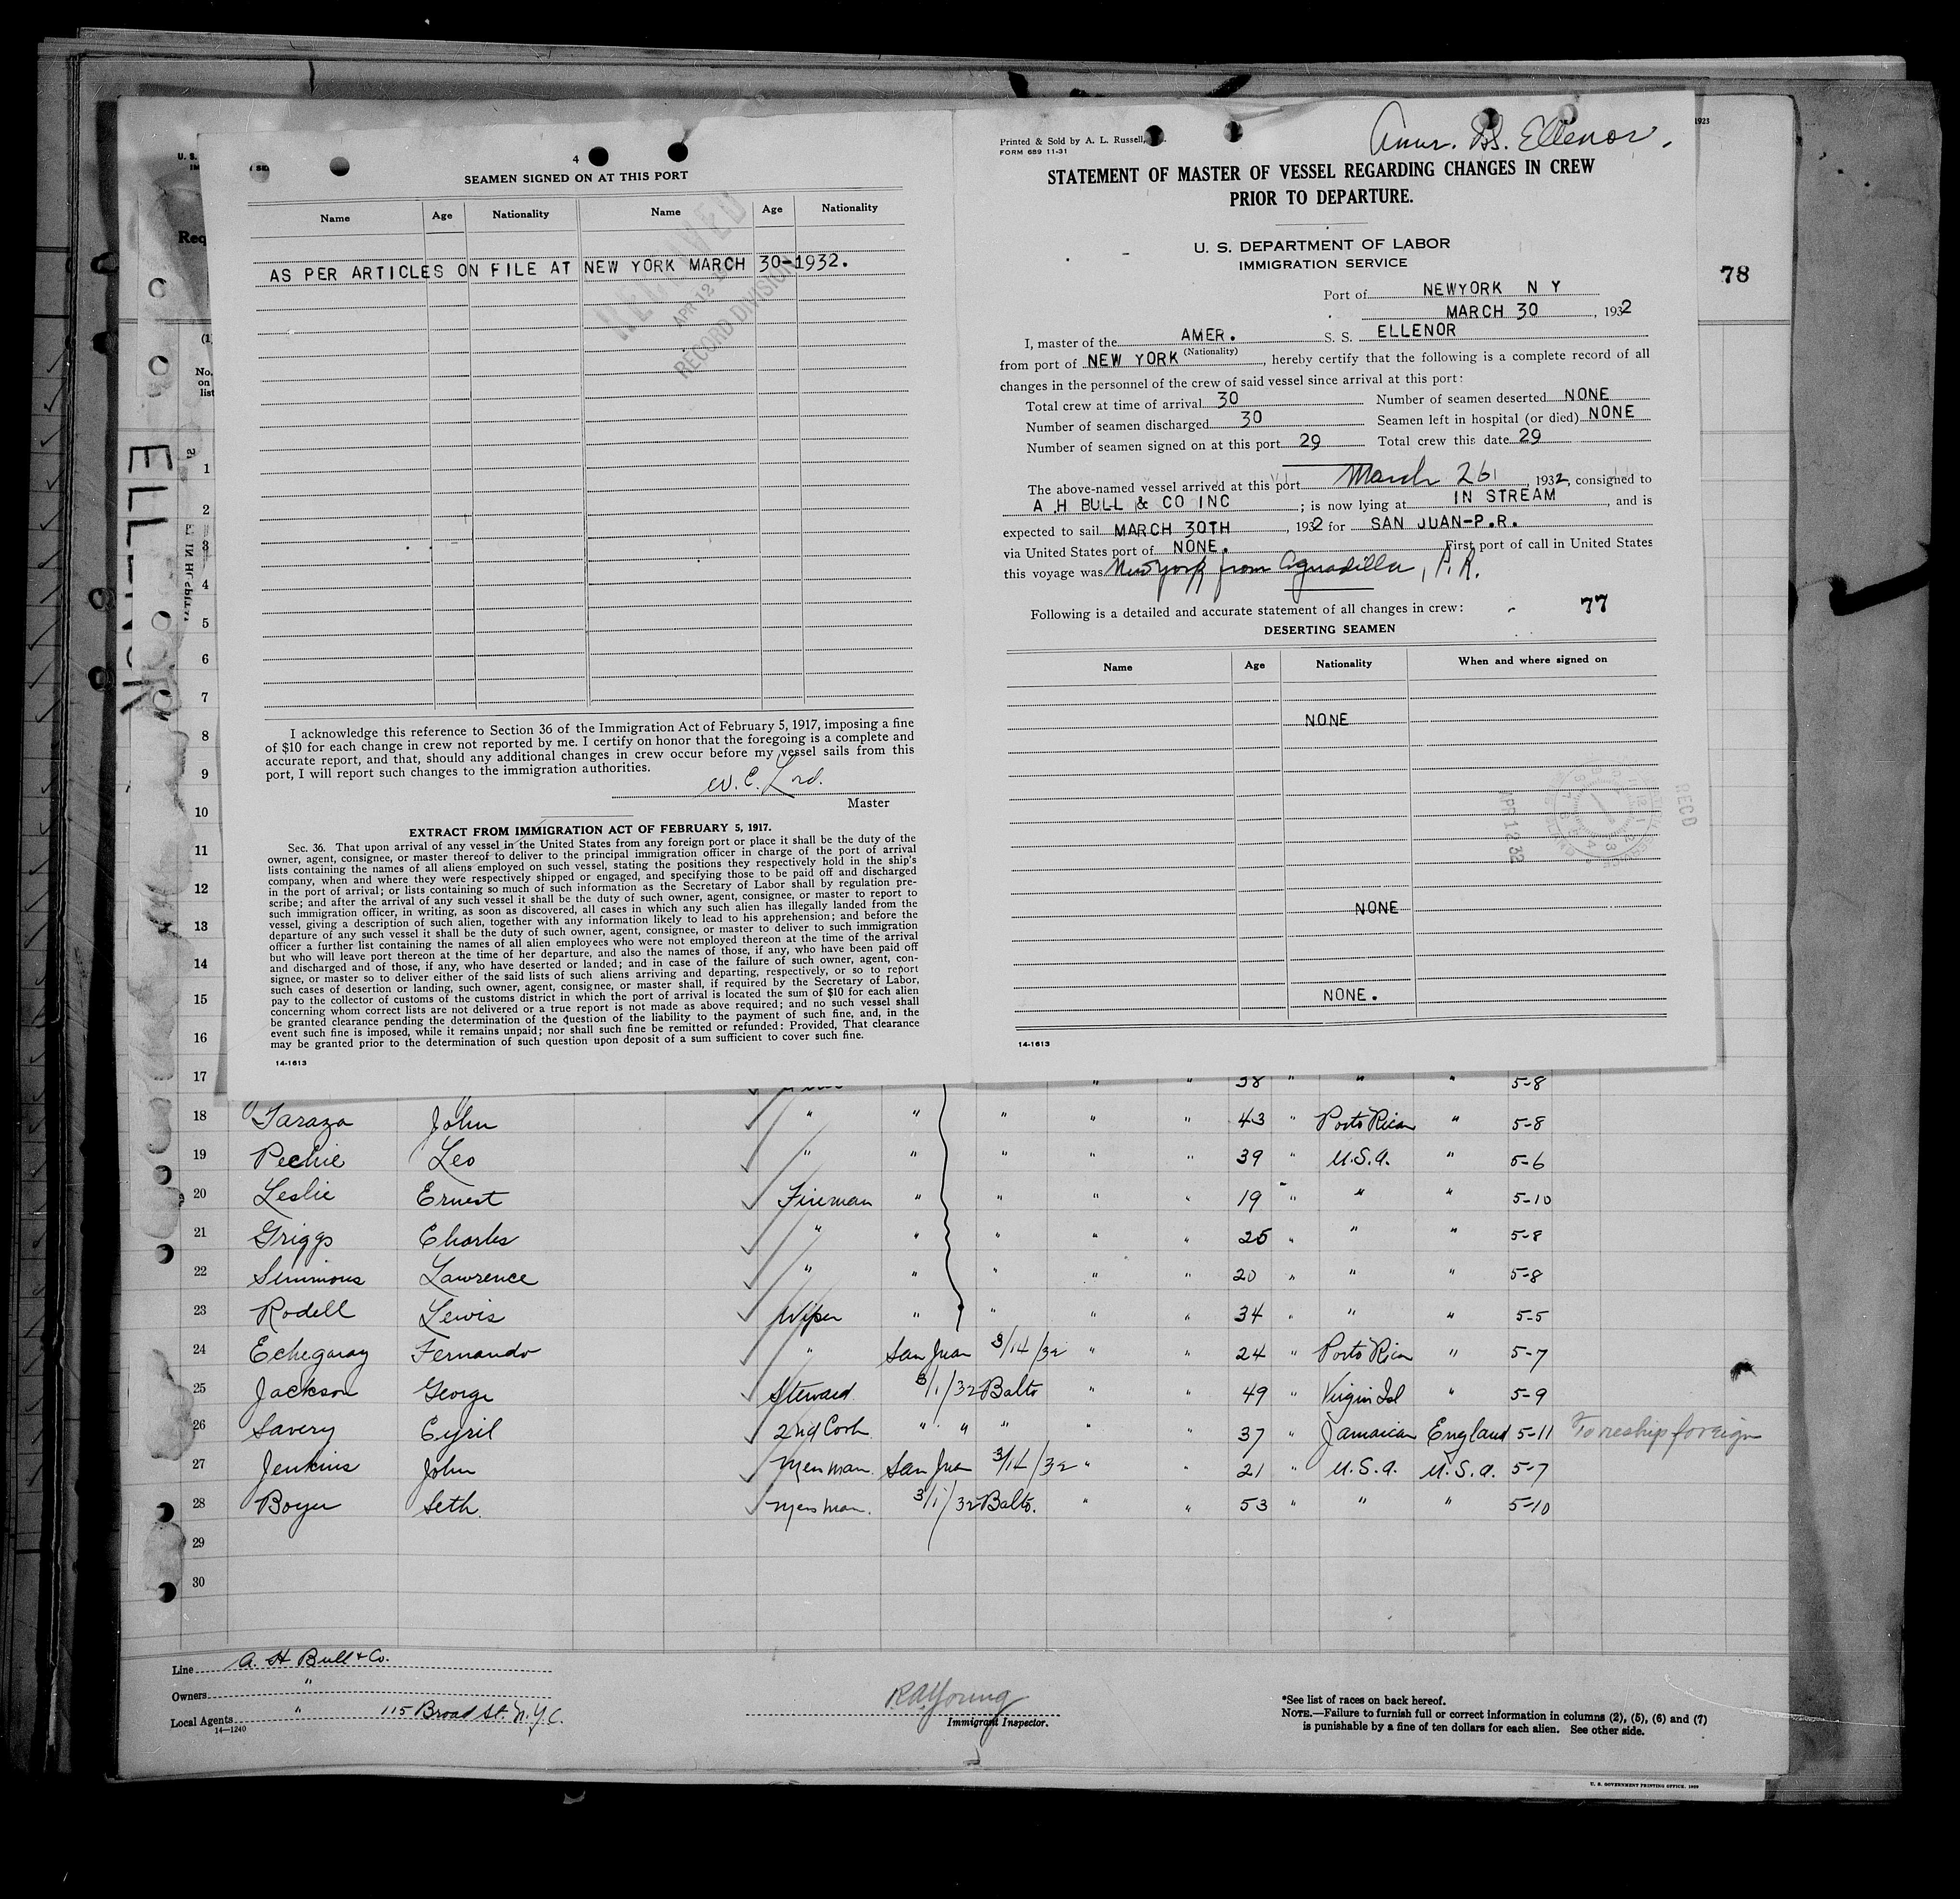 4
SEAMEN SIGNED ON AT THIS PORT
Name Age Nationality Name Age Nationality
AS PER ARTICLES ON FILE AT NEW YORK MARCH 30-1932.
RECEIVED
APR 12
RECORD DIVISION
I acknowledge this reference to Section 36 of the Immigration Act of February 5, 1917, imposing a fine
of $10 for each change in crew not reported by me. I certify on honor that the foregoing is a complete and
accurate report, and that, should any additional changes in crew occur before my vessel sails from this
port, I will report such changes to the immigration authorities.
W. C. Lord.
Master
EXTRACT FROM IMMIGRATION ACT OF FEBRUARY 5, 1917.
Sec. 36. That upon arrival of any vessel in the United States from any foreign port or place it shall be the duty of the
owner, agent, consignee, or master thereof to deliver to the principal immigration officer in charge of the port of arrival
lists containing the names of all aliens employed on such vessel, stating the positions they respectively hold in the ship's
company, when and where they were respectively shipped or engaged, and specifying those to be paid off and discharged
in the port of arrival; or lists containing so much of such information as the Secretary of Labor shall by regulation pre-
scribe; and after the arrival of any such vessel it shall be the duty of such owner, agent, consignee, or master to report to
such immigration officer, in writing, as soon as discovered, all cases in which any such alien has illegally landed from the
vessel, giving a description of such alien, together with any information likely to lead to his apprehension; and before the
departure of any such vessel it shall be the duty of such owner, agent, consignee, or master to deliver to such immigration
officer a further list containing the names of all alien employees who were not employed thereon at the time of the arrival
but who will leave port thereon at the time of her departure, and also the names of those, if any, who have been paid off
and discharged and of those, if any, who have deserted or landed; and in case of the failure of such owner, agent, con-
signee, or master so to deliver either of the said lists of such aliens arriving and departing, respectively, or so to report
such cases of desertion or landing, such owner, agent, consignee, or master shall, if required by the Secretary of Labor,
pay to the collector of customs of the customs district in which the port of arrival is located the sum of $10 for each alien
concerning whom correct lists are not delivered or a true report is not made as above required; and no such vessel shall
be granted clearance pending the determination of the question of the liability to the payment of such fine, and, in the
event such fine is imposed, while it remains unpaid; nor shall such fine be remitted or refunded: Provided, That clearance
may be granted prior to the determination of such question upon deposit of a sum sufficient to cover such fine.
14-1613
Printed & Sold by A. L. Russell,
FORM 689 11-31
Amer. SS. Ellenor.
STATEMENT OF MASTER OF VESSEL REGARDING CHANGES IN CREW
PRIOR TO DEPARTURE.
U. S. DEPARTMENT OF LABOR
IMMIGRATION SERVICE
Port of NEWYORK N Y
MARCH 30, 1932
I, master of the AMER. S. S. ELLENOR
(Nationality)
from port of NEW YORK, hereby certify that the following is a complete record of all
changes in the personnel of the crew of said vessel since arrival at this port:
Total crew at time of arrival 30 Number of seamen deserted NONE
Number of seamen discharged 30 Seamen left in hospital (or died) NONE
Number of seamen signed on at this port 29 Total crew this date 29
The above-named vessel arrived at this port March 26, 1932, consigned to
A H BULL & CO INC; is now lying at IN STREAM, and is
expected to sail MARCH 30TH, 1932 for SAN JUAN-P.R.
via United States port of NONE. First port of call in United States
this voyage was New York from Aguadilla, P.R.
Following is a detailed and accurate statement of all changes in crew: 77
DESERTING SEAMEN
Name Age Nationality When and where signed on
NONE
NONE
NONE.
APR 12 32
RECD
14-1613
1923
78
U. S.
Req
(1)
No.
on
list
ELLENOR
1
2
3
4
5
6
7
8
9
10
11
12
13
14
15
16
17 " " 38 " " " 5-8
18 Taraza John " " " " " 43 " Porto Rican " 5-8
19 Pechie Leo " " " " " 39 " U.S.A. " 5-6
20 Leslie Ernest Fireman " " " " 19 " " " 5-10
21 Griggs Charles " " " " " 25 " " " 5-8
22 Simmons Lawrence " " " " " 20 " " " 5-8
23 Rodell Lewis Wiper " " " " 34 " " " 5-5
24 Echegaray Fernando " San Juan 3/14/32 " " 24 " Porto Rican " 5-7
25 Jackson George Steward 3/1/32 Balto " " 49 " Virgin Isl " 5-9
26 Savery Cyril 2nd Cook " " " " " 37 " Jamaican England 5-11 To reship foreign
27 Jenkins John Messman. San Juan 3/14/32 " " 21 " U.S.A. U.S.A. 5-7
28 Boyer Seth. Messman. 3/1/32 Balto. " " 53 " " " 5-10
29
30
Line A. H. Bull & Co.
Owners "
Local Agents " 115 Broad St. N.Y.C.
14-1240
R A Young
Immigrant Inspector.
*See list of races on back hereof.
NOTE.—Failure to furnish full or correct information in columns (2), (5), (6) and (7)
is punishable by a fine of ten dollars for each alien. See other side.
U. S. GOVERNMENT PRINTING OFFICE. 1929